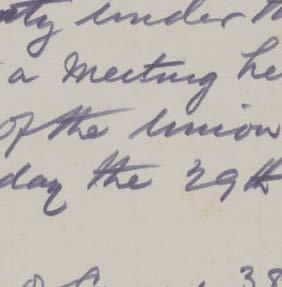 nty under th
a Meeting he
of the Union
day the 29th
38